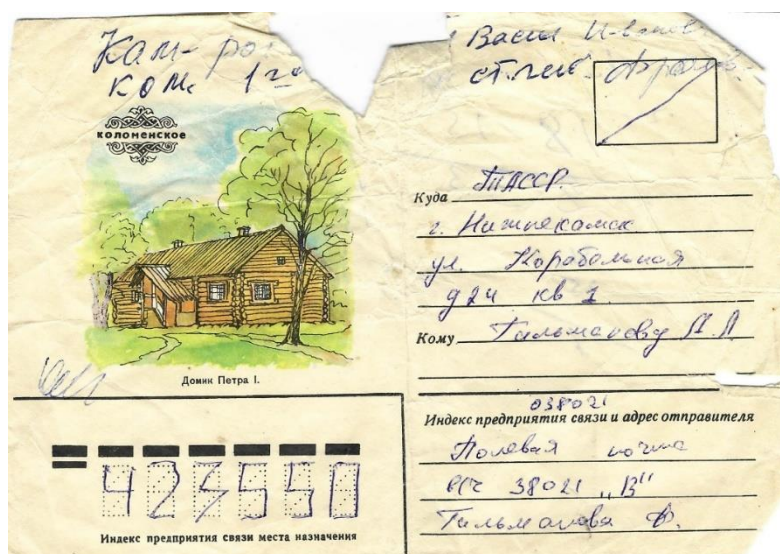 Кам-
ком. 1го
Васи
ст. лей.
коломенское
Домик Петра I.
Куда ТАССР.
г. Нижнекамск
ул. Корабельная
д 24 кв 1.
Кому Гильманову
038021
Индекс предприятия связи и адрес отправителя
Полевая почта
в/ч 38021 „В"
Гильманова Ф.
423550
Индекс предприятия связи места назначения